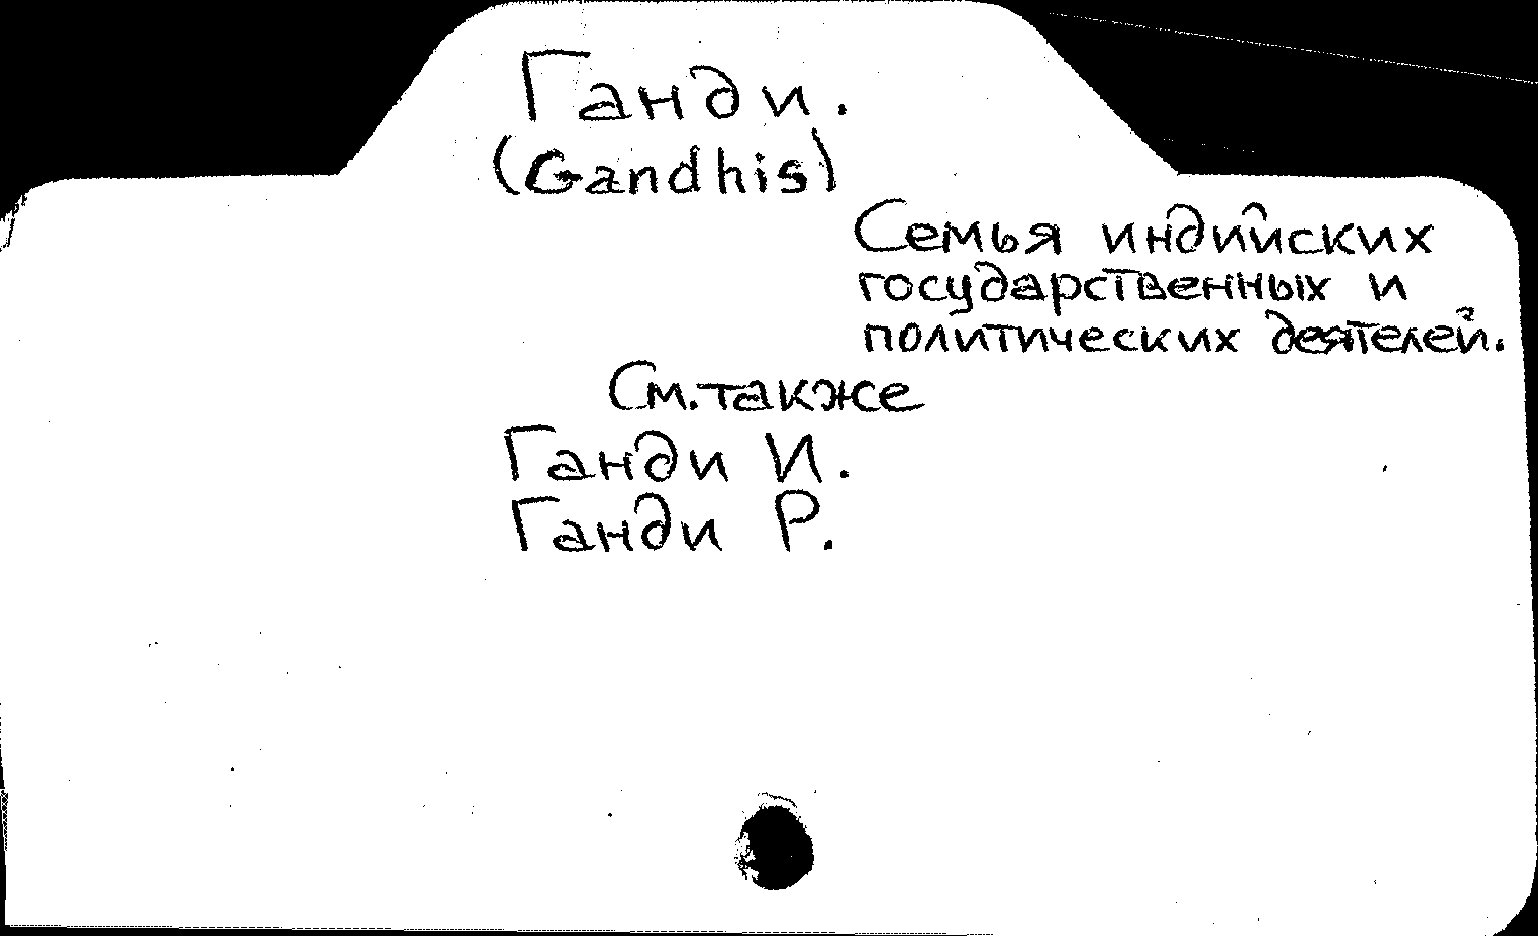 Ганди.
(Gandhis)
Семья индийских
государственных и
политических деятелей.
См. также
Ганди И.
Ганди Р.